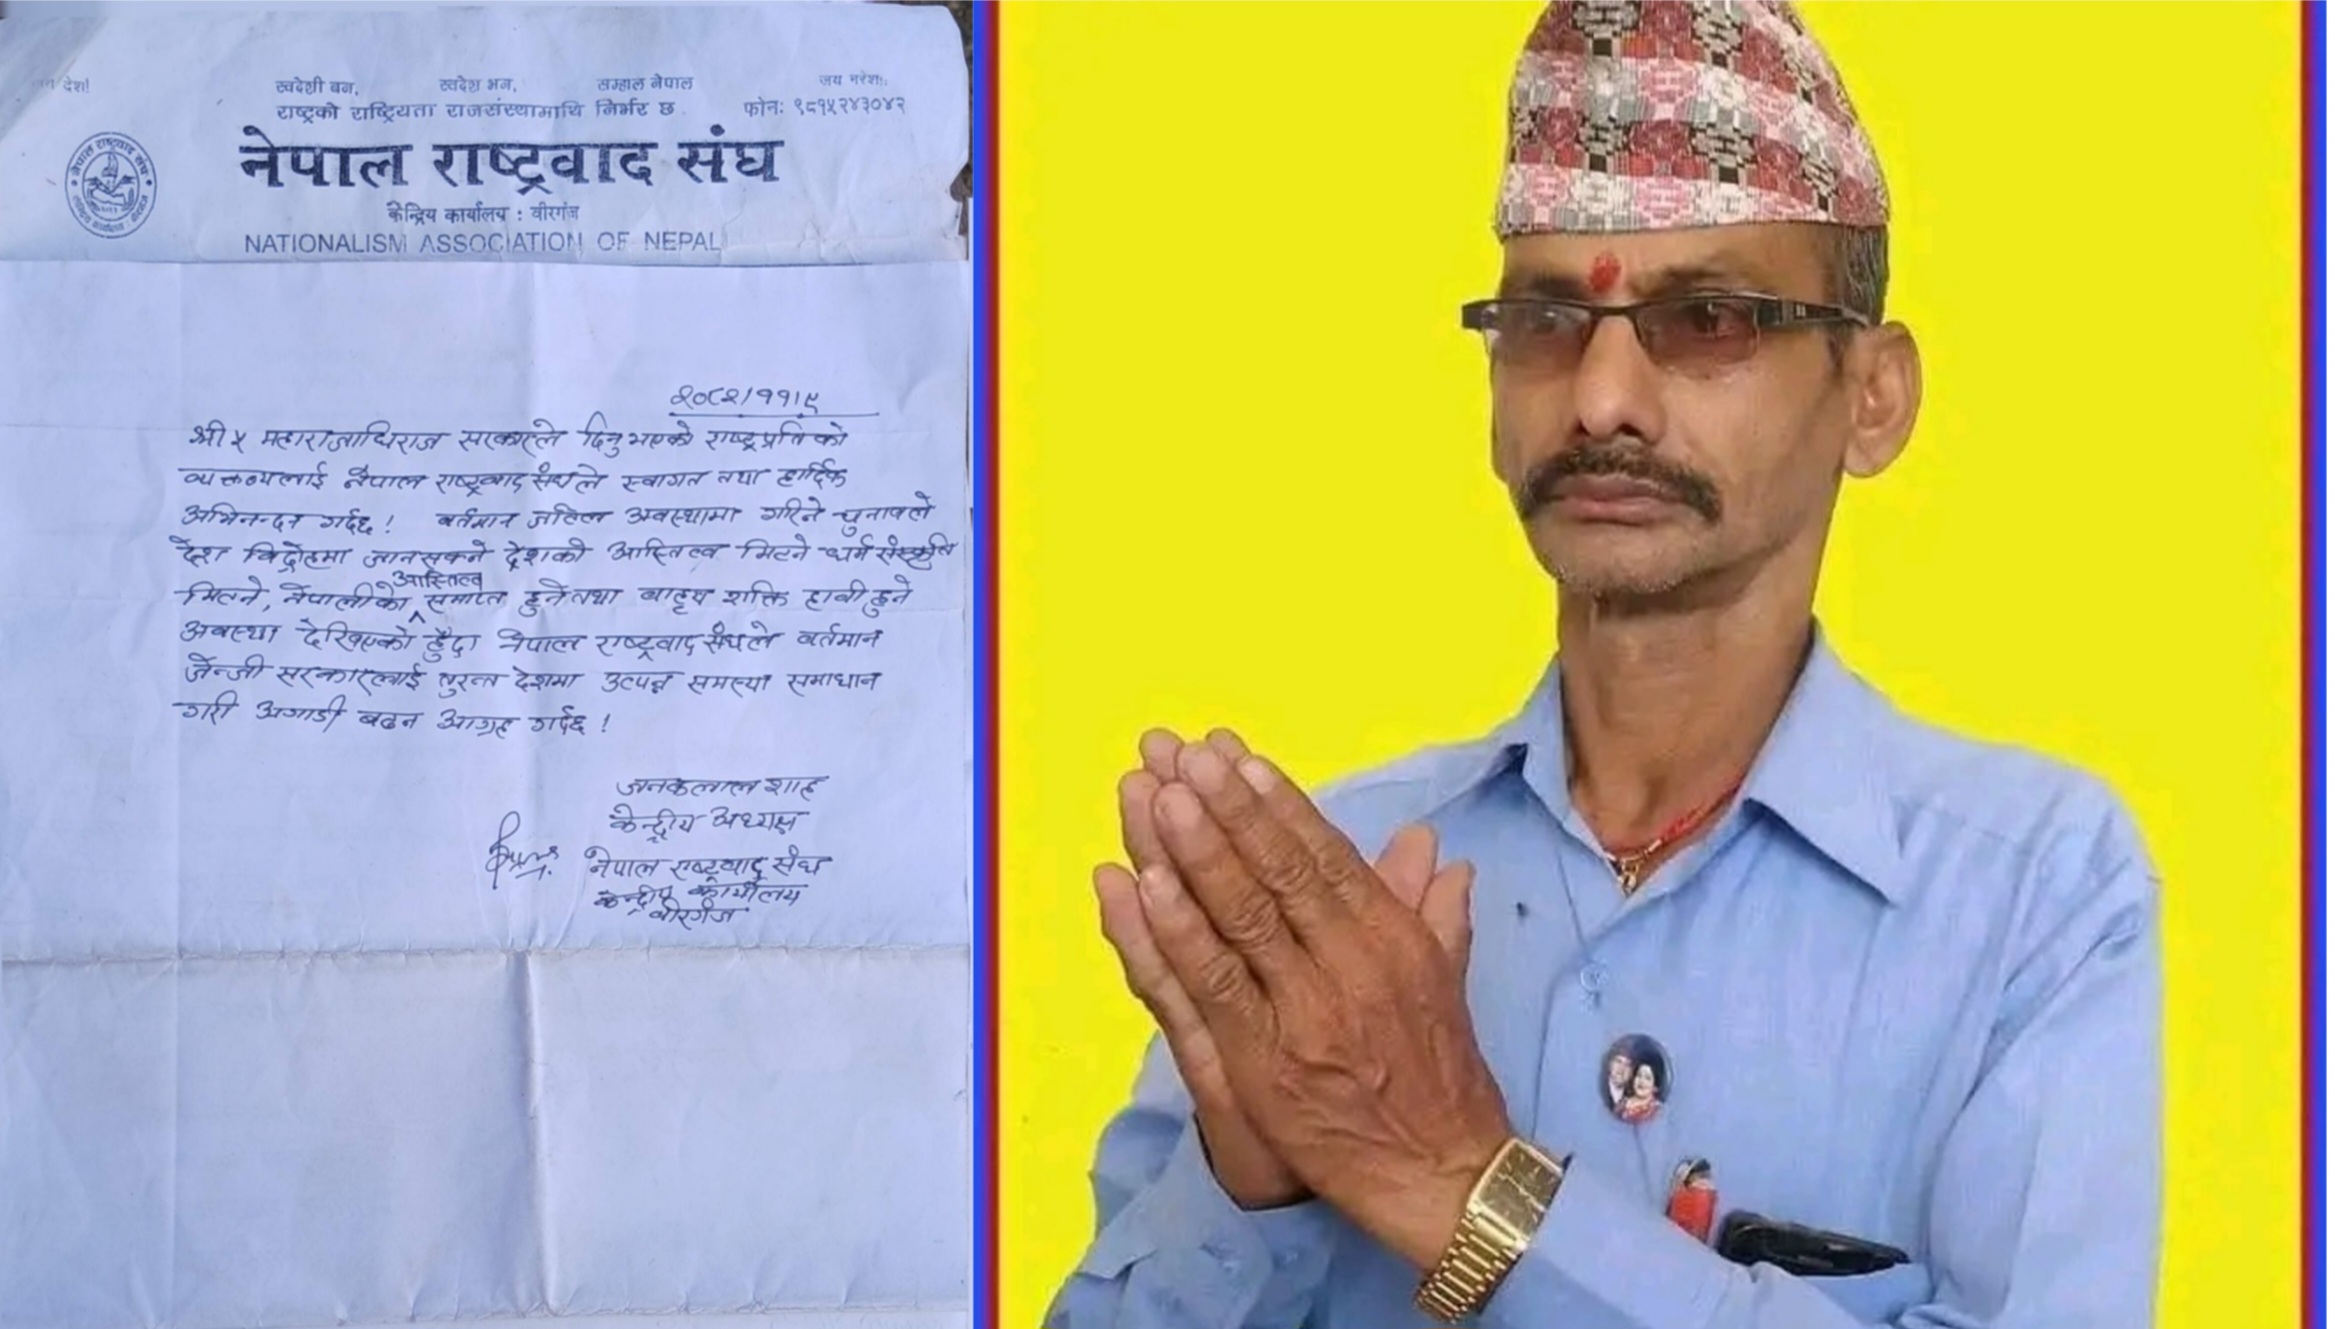 स्वदेशी बन, स्वदेश भन, सम्हाल नेपाल जय नरेश!
राष्ट्रको राष्ट्रियता राजसंस्थामाथि निर्भर छ. फोन: ९८१५२४३०४२
नेपाल राष्ट्रवाद संघ
केन्द्रिय कार्यालय : वीरगंज
NATIONALISM ASSOCIATION OF NEPAL
२०८२/११/९
श्री ५ महाराजाधिराज सरकारले दिनुभएको राष्ट्रप्रतिको
व्यक्तव्यलाई नेपाल राष्ट्रवाद संघले स्वागत तथा हार्दिक
अभिनन्दन गर्दछ! वर्तमान जटिल अवस्थामा गरिने चुनावले
देश विद्रोहमा जानसक्ने देशको अस्तित्व मिटने धर्म संस्कृति
मिटने, नेपालीको अस्तित्व समाप्त हुने तथा वाह्य शक्ति हावी हुने
अवस्था देखिएको हुँदा नेपाल राष्ट्रवाद संघले वर्तमान
जेन्जी सरकारलाई तुरुन्त देशमा उत्पन्न समस्या समाधान
गरी अगाडी बढन आग्रह गर्दछ!
जनकलाल शाह
केन्द्रीय अध्यक्ष
नेपाल राष्ट्रवाद संघ
केन्द्रीय कार्यालय
वीरगंज